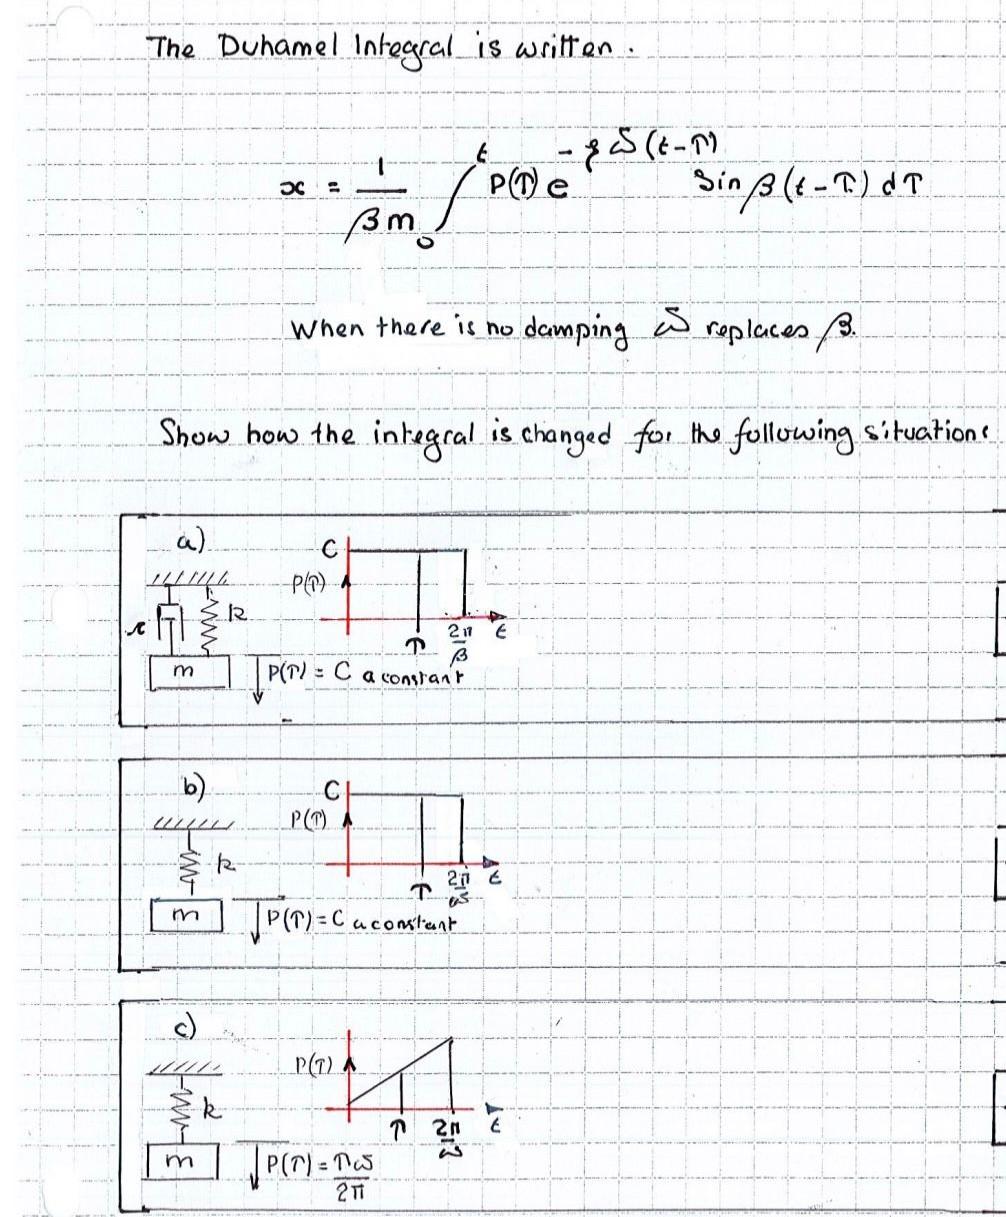 The Duhamel Integral is written.
x = 1/βm ∫₀ᵗ P(τ) e^(-ξω̃(t-τ)) Sin β(t-τ) dτ
When there is no damping ω̃ replaces β.
Show how the integral is changed for the following situations
a)
C
P(τ)
k
c
τ 2π/β t
m
P(τ) = C a constant
b)
C
P(τ)
k
τ 2π/ω̃ t
m
P(τ) = C a constant
c)
P(τ)
k
τ 2π/ω̃ t
m
P(τ) = τω̃/2π